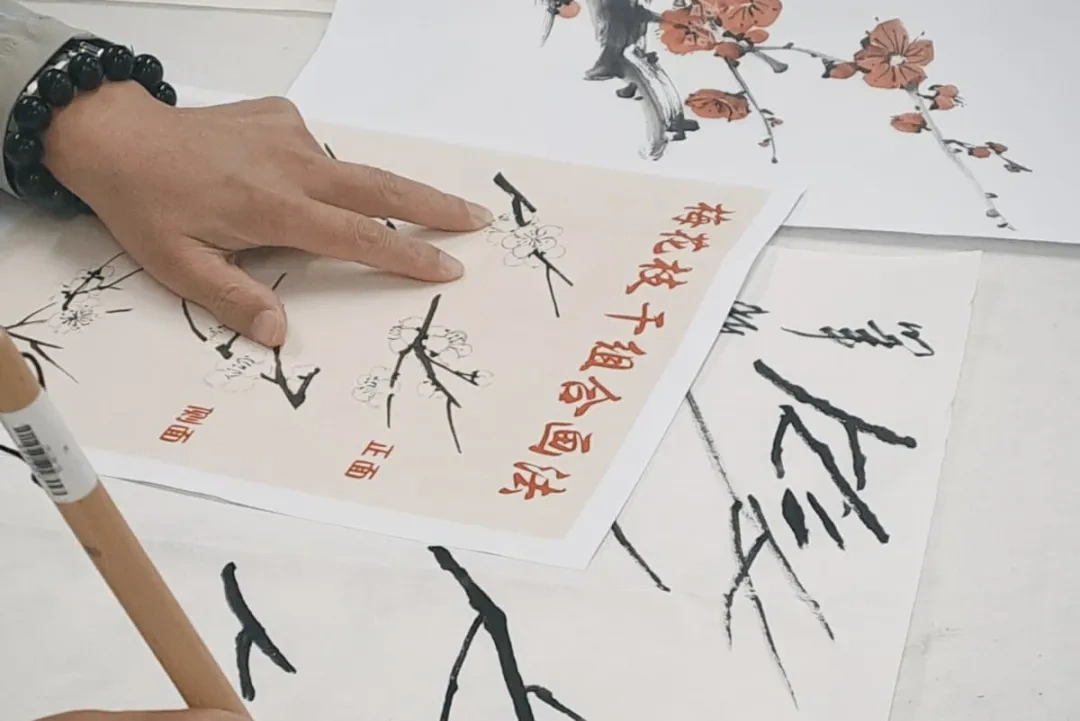 梅花枝干组合画法
正面
侧面